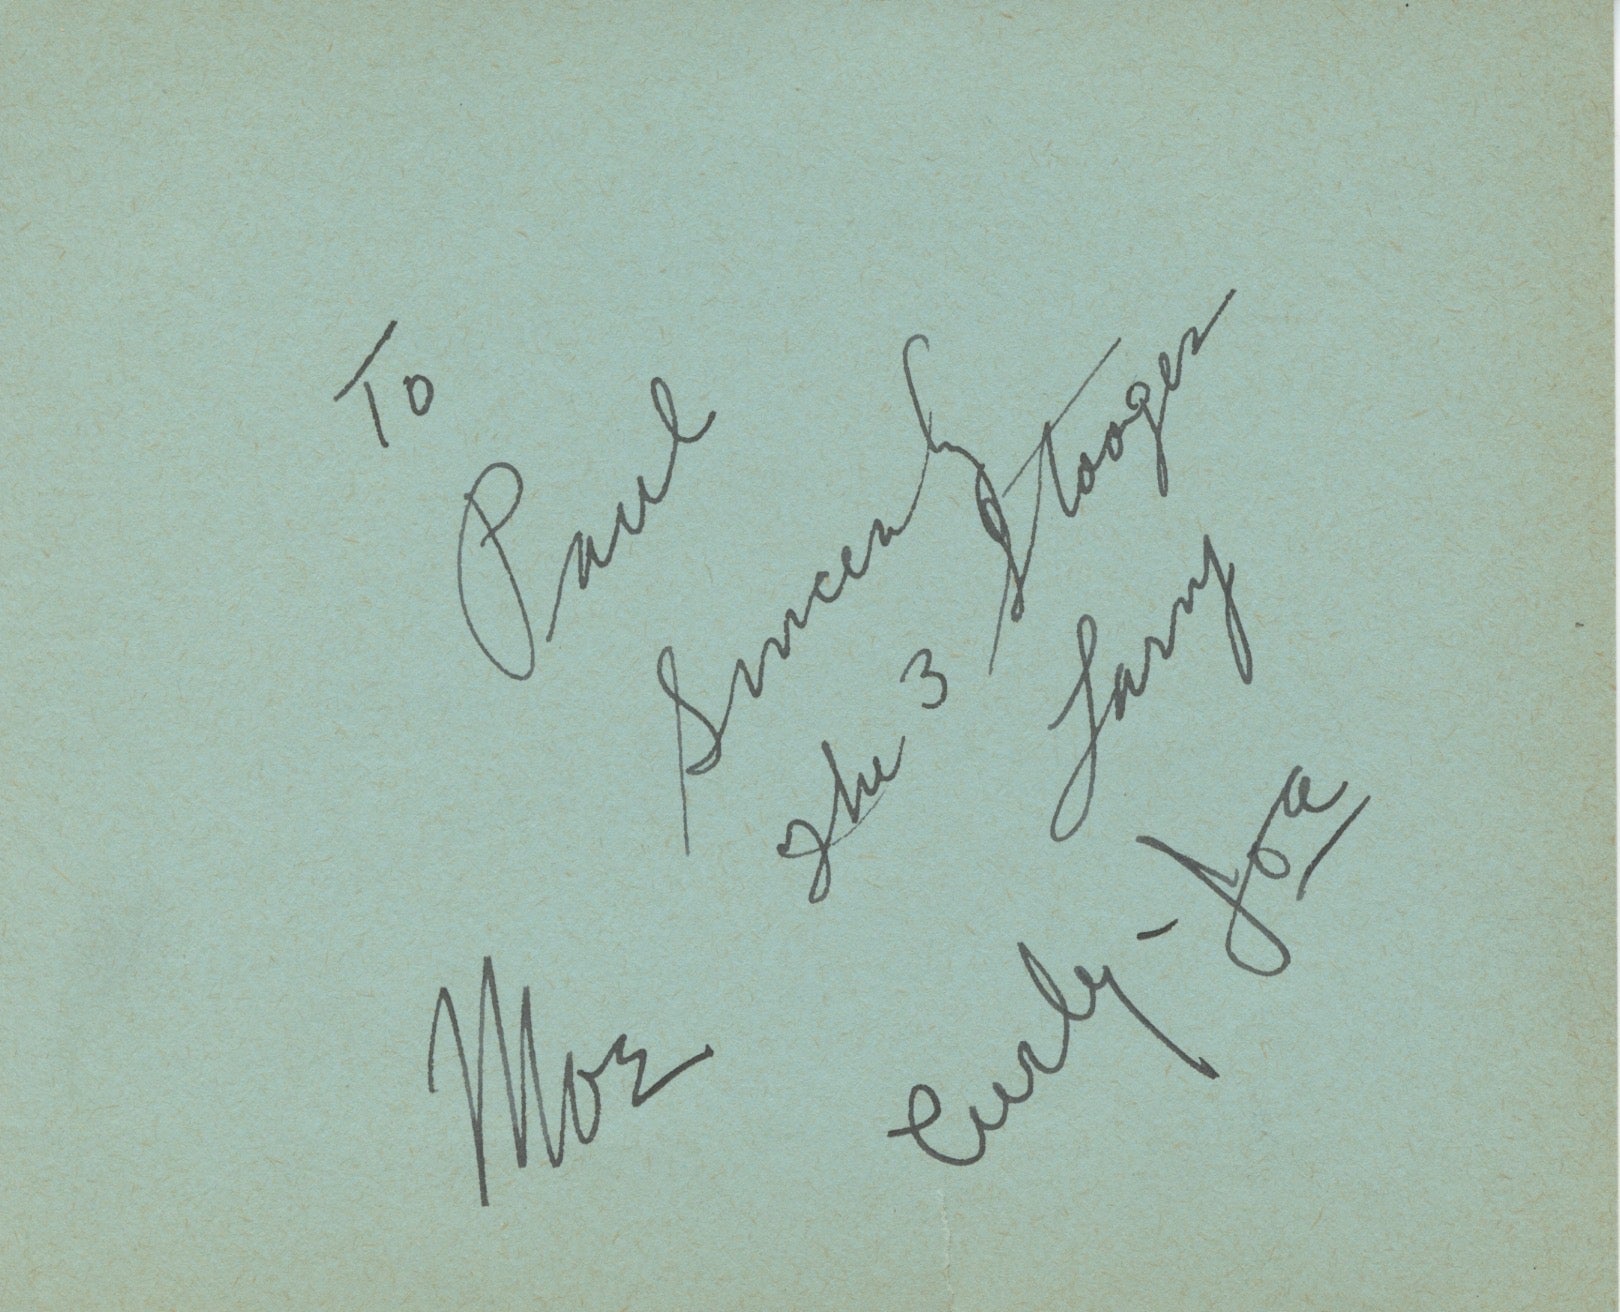 To
Paul
Sincerely
The 3 Stooges
Larry
Moe
Curly-Joe